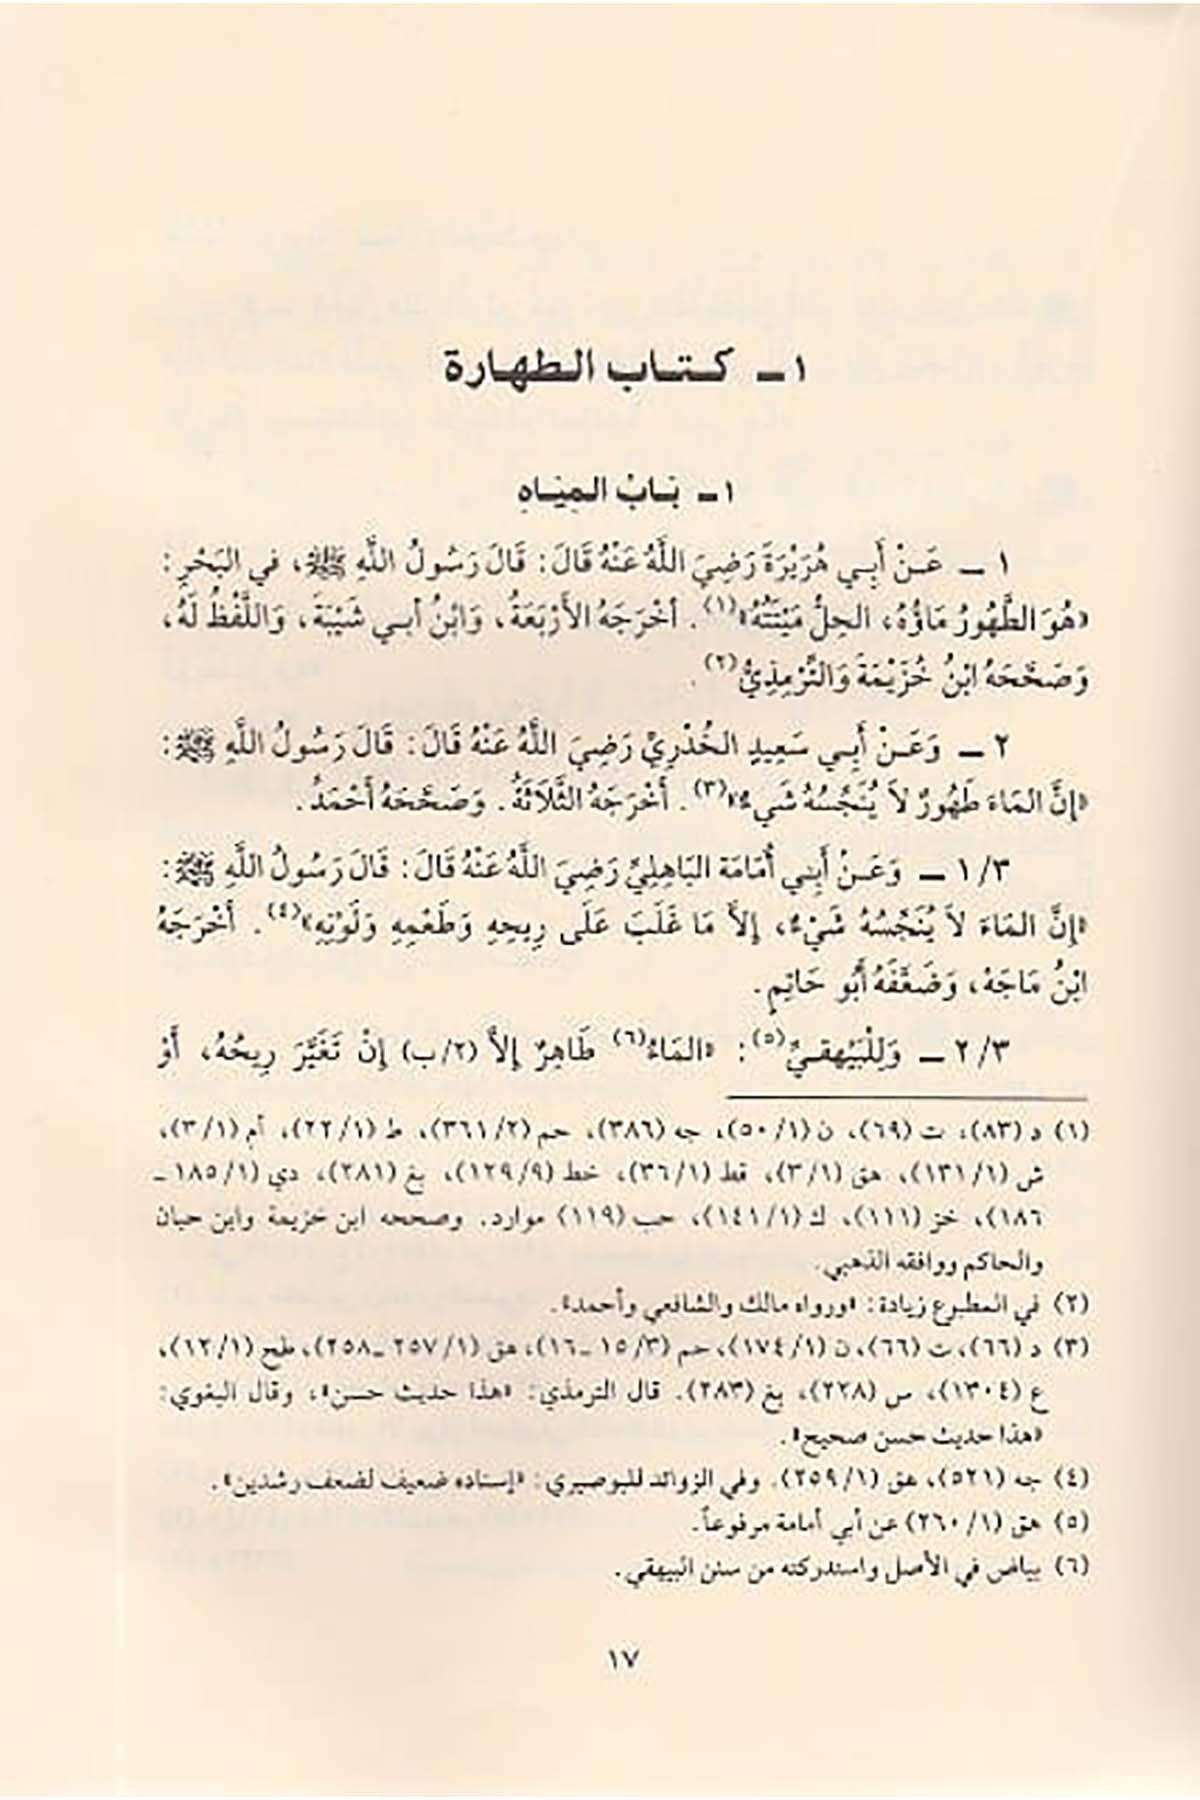 ١ ـ كـتـاب الـطـهـارة
١ ـ بَـابُ الـمِـيَـاهِ
١ ـ عَـنْ أَبِـي هُرَيْرَةَ رَضِيَ اللَّهُ عَنْهُ قَالَ: قَالَ رَسُولُ اللَّهِ ﷺ، في البَحْرِ:
«هُوَ الطَّهُورُ مَاؤُهُ، الحِلُّ مَيْتَتُهُ»(١). أخْرَجَهُ الأَرْبَعَةُ، وَابْنُ أبـي شَيْبَةَ، وَاللَّفْظُ لَهُ،
وَصَحَّحَهُ ابْنُ خُزَيْمَةَ وَالتِّرْمِذِيُّ(٢).
٢ ـ وَعَـنْ أَبِـي سَعِيدٍ الخُدْرِيِّ رَضِيَ اللَّهُ عَنْهُ قَالَ: قَالَ رَسُولُ اللَّهِ ﷺ:
«إنَّ المَاءَ طَهُورٌ لاَ يُنَجِّسُهُ شَيءٌ»(٣). أَخْرَجَهُ الثَّلاَثَةُ. وَصَحَّحَهُ أَحْمَدُ.
١/٣ ـ وَعَـنْ أَبِي أُمَامَة البَاهِلِيِّ رَضِيَ اللَّهُ عَنْهُ قَالَ: قَالَ رَسُولُ اللَّهِ ﷺ:
«إنَّ المَاءَ لاَ يُنَجِّسُهُ شَيْءٌ، إلاَّ مَا غَلَبَ عَلَى رِيحِهِ وَطَعْمِهِ وَلَوْنِهِ»(٤). أَخْرَجَهُ
ابْنُ مَاجَهْ، وَضَعَّفَهُ أَبُو حَاتِمٍ.
٢/٣ ـ وَلِلْبَيْهقـيِّ(٥): «المَاءُ(٦) طَاهِرٌ إلاَّ (٢/ب) إنْ تَغَيَّرَ رِيحُهُ، أَوْ
(١) د (٨٣)، ت (٦٩)، ن (٥٠/١)، جه (٣٨٦)، حم (٣٦١/٢)، ط (٢٢/١)، أم (٣/١)،
ش (١٣١/١)، هق (٣/١)، قط (٣٦/١)، خط (١٢٩/٩)، بغ (٢٨١)، دي (١٨٥/١ ـ
١٨٦)، خز (١١١)، ك (١٤١/١)، حب (١١٩) موارد. وصححه ابن خزيمة وابن حبان
والحاكم ووافقه الذهبي.
(٢) في المطبوع زيادة: «ورواه مالك والشافعي وأحمد».
(٣) د (٦٦)، ت (٦٦)، ن (١٧٤/١)، حم (١٥/٣ ـ ١٦)، هق (٢٥٧/١ ـ ٢٥٨)، طح (١٢/١)،
ع (١٣٠٤)، س (٢٢٨)، بغ (٢٨٣). قال الترمذي: «هذا حديث حسن»، وقال البغوي:
«هذا حديث حسن صحيح».
(٤) جه (٥٢١)، هق (٢٥٩/١). وفي الزوائد للبوصيري: «إسناده ضعيف لضعف رشدين».
(٥) هق (٢٦٠/١) عن أبي أمامة مرفوعاً.
(٦) بياض في الأصل واستدركته من سنن البيهقي.
١٧